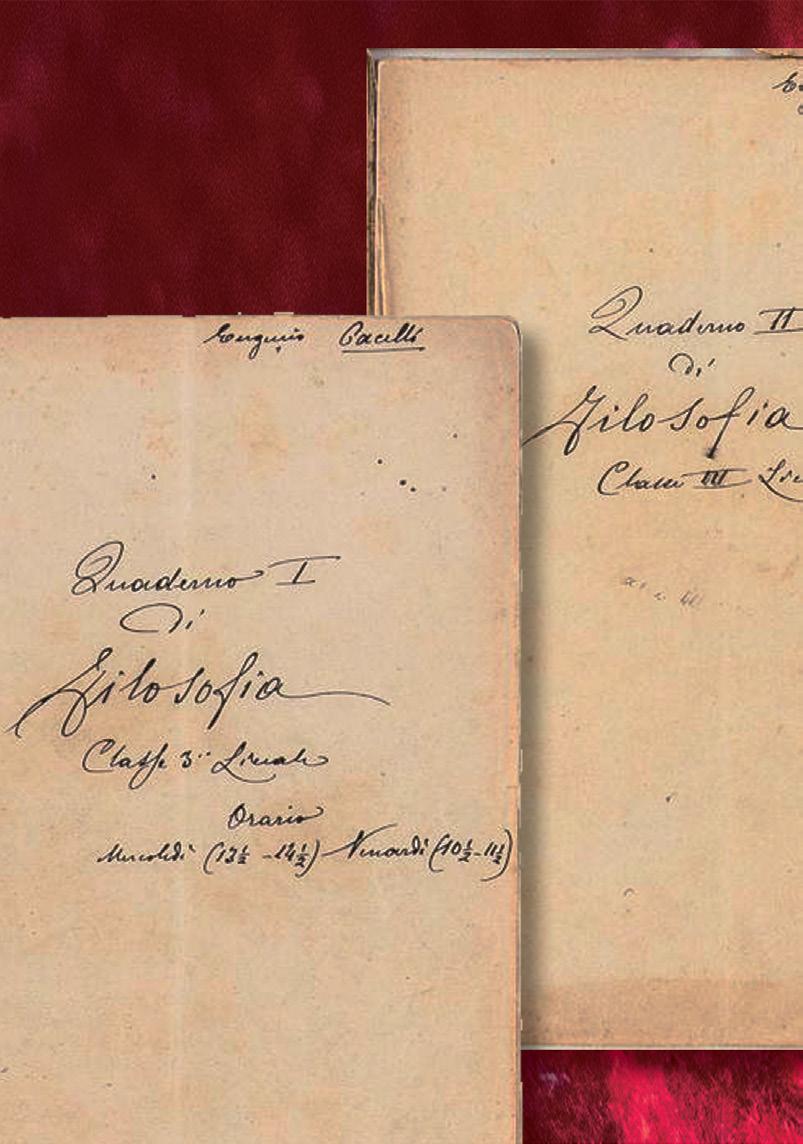 Eugenio Pacelli
Quaderno I
di
Filosofia
Classe 3ª Liceale
Orario
Mercoledì (13½ -14½) Venerdì (10½-11½)
Quaderno II
di
Filosofia
Classe III